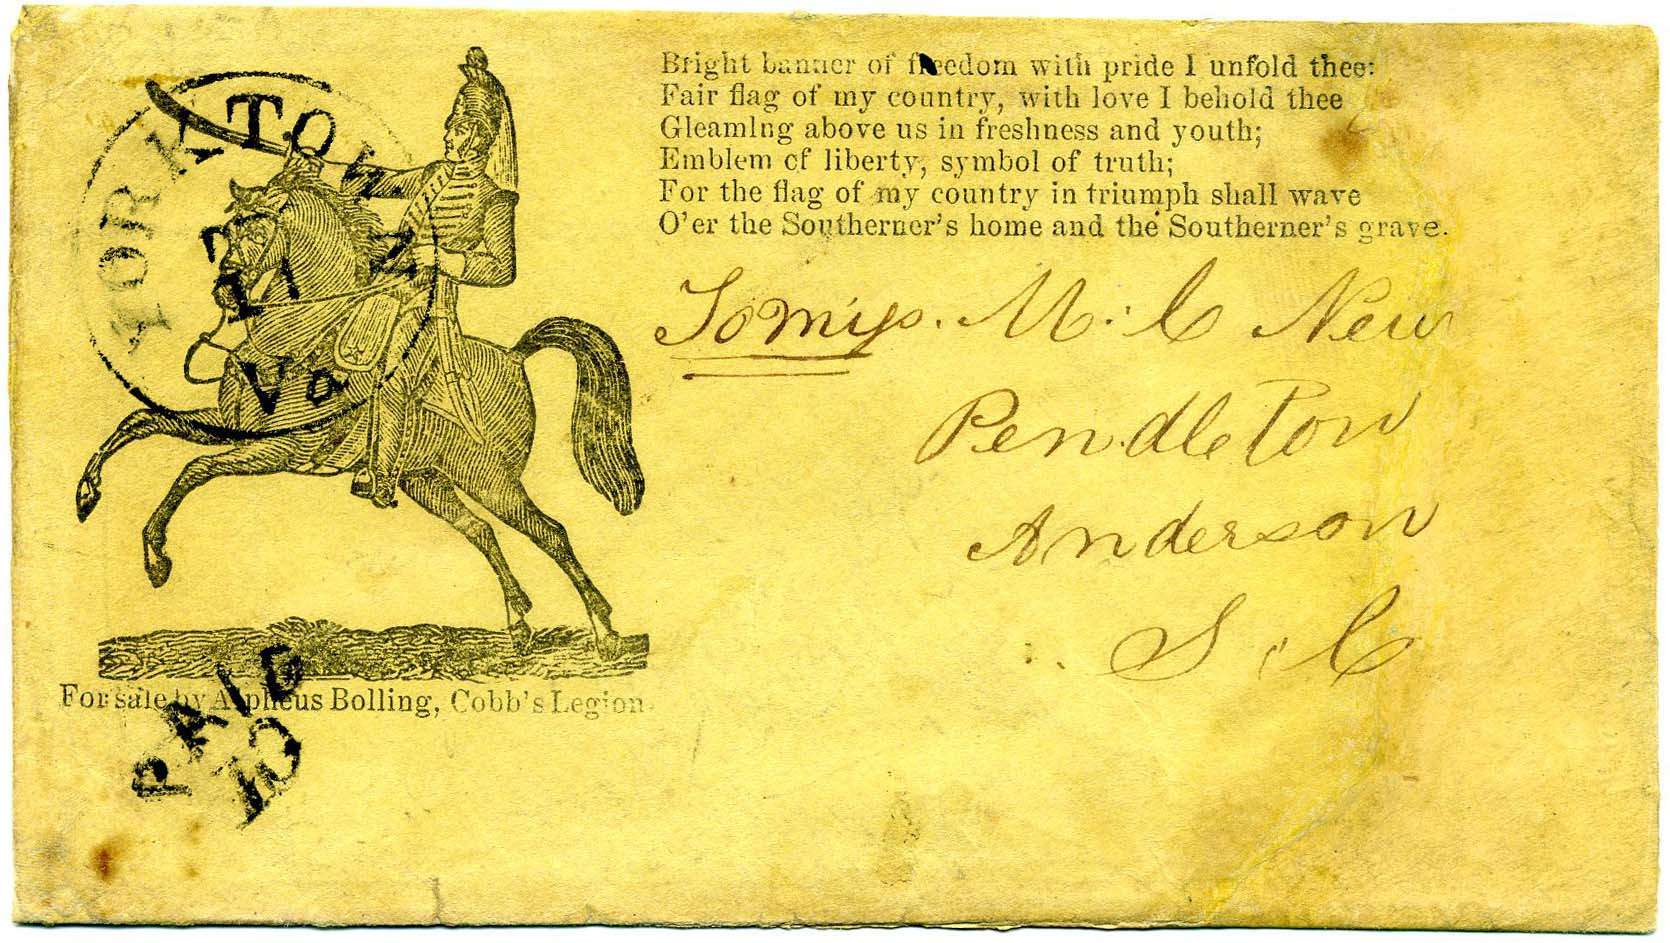 Bright banner of freedom with pride I unfold thee:
Fair flag of my country, with love I behold thee
Gleaming above us in freshness and youth;
Emblem of liberty, symbol of truth;
For the flag of my country in triumph shall wave
O'er the Southerner's home and the Southerner's grave.
YORKTOWN
Va
To M. C New
Pendleton
Anderson
S. C
For sale by Alpheus Bolling, Cobb's Legion.
PAID
10